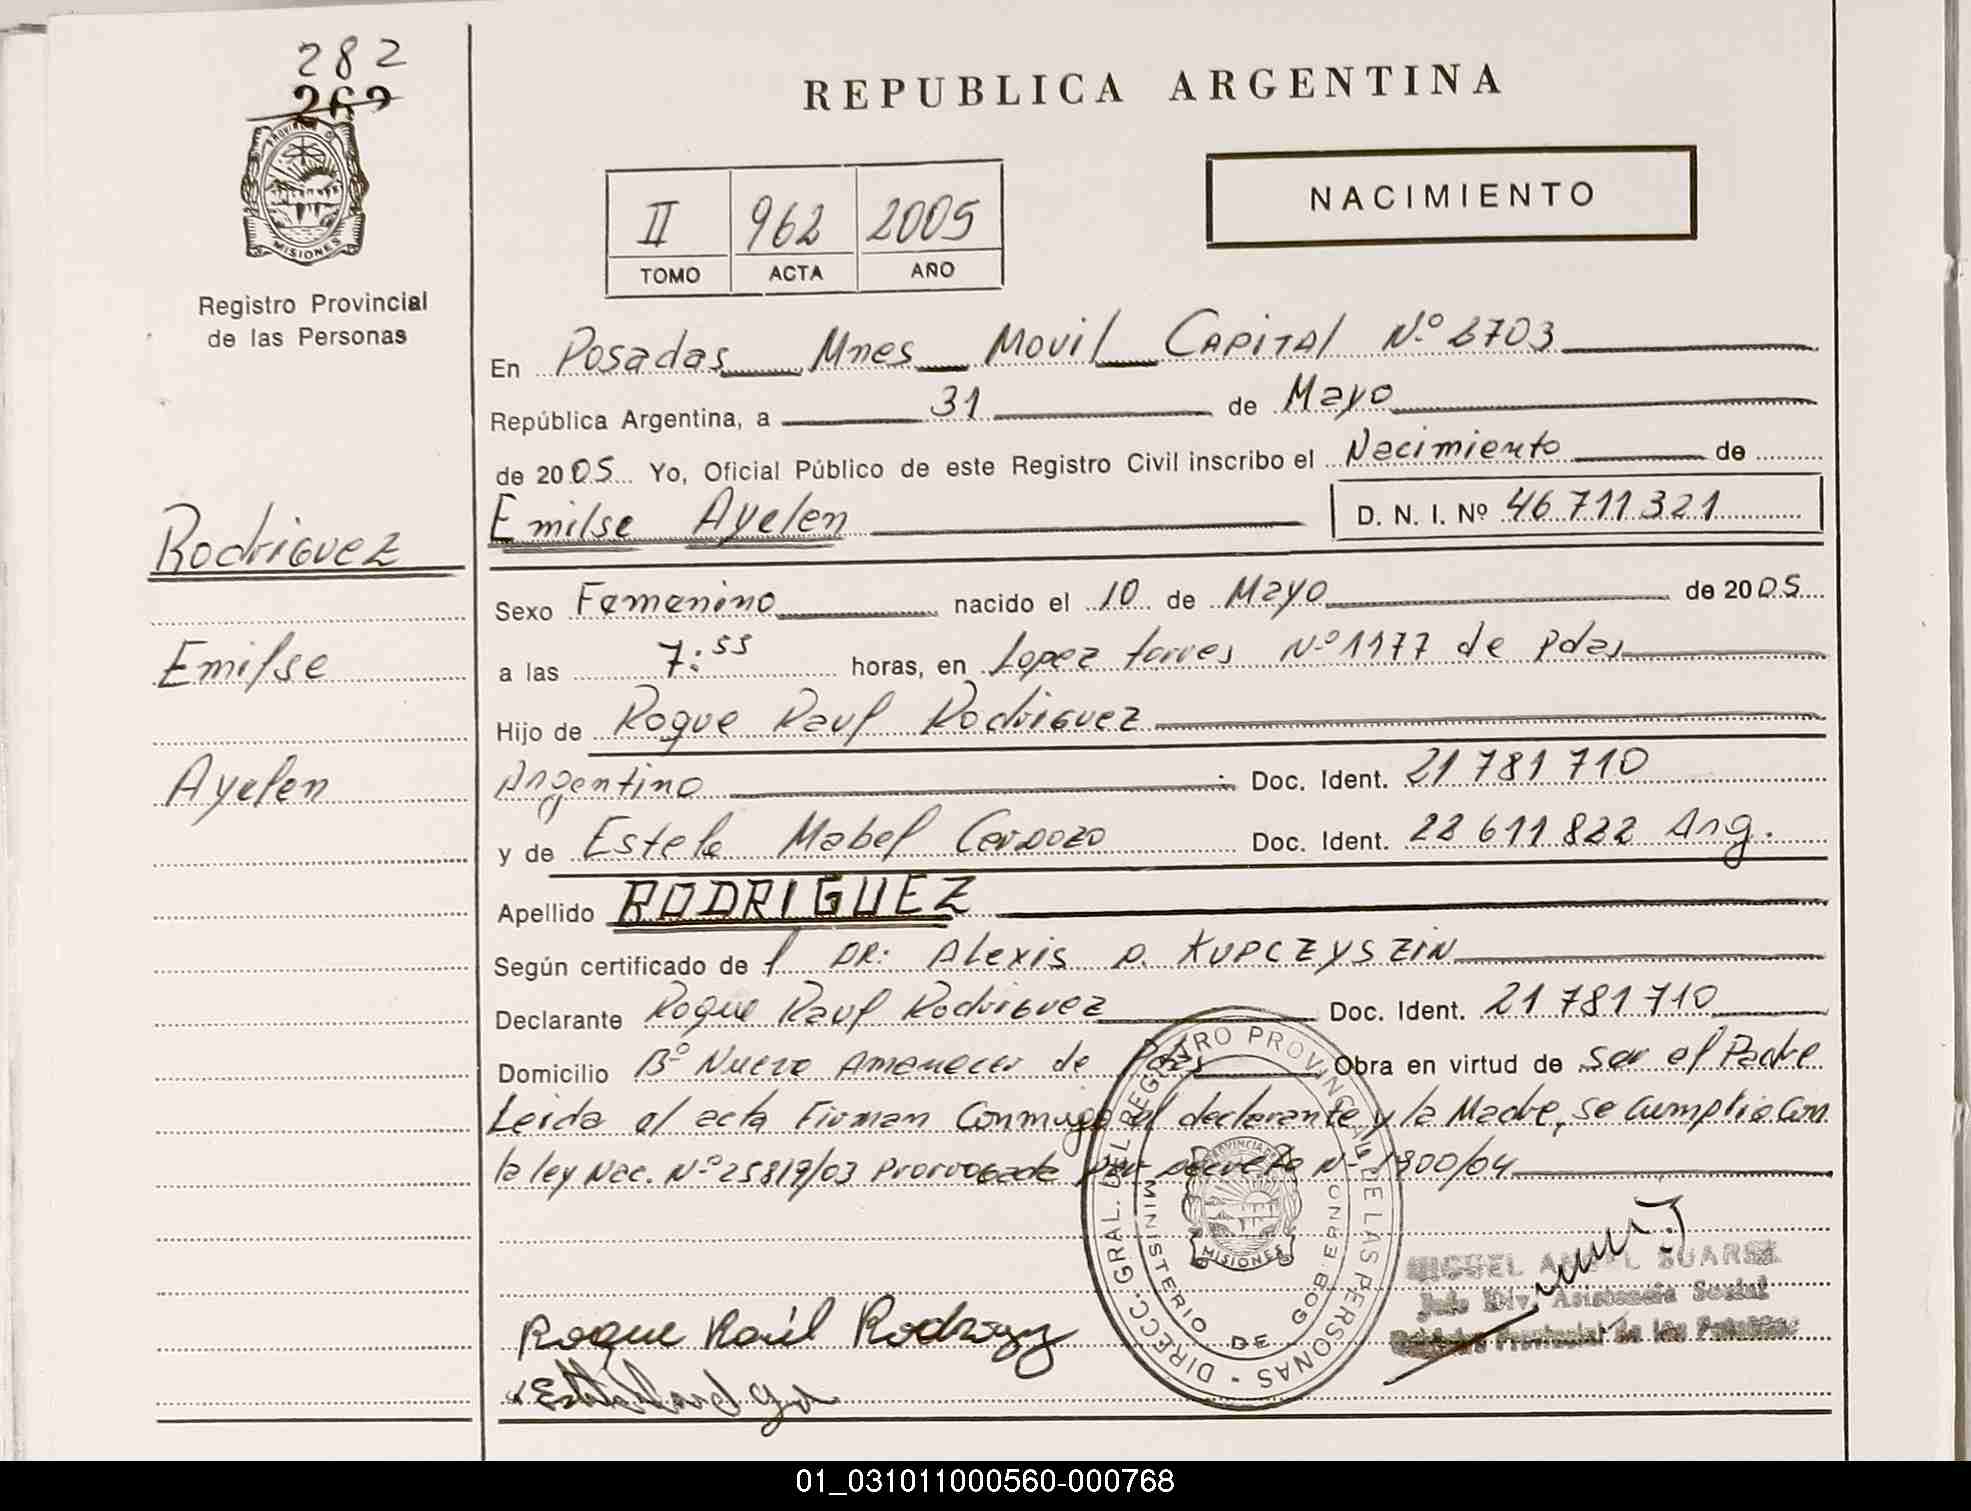 282
269
PROVINCIA DE
MISIONES
Registro Provincial
de las Personas
REPUBLICA ARGENTINA
NACIMIENTO
II 962 2005
TOMO ACTA AÑO
En Posadas Mnes Movil Capital Nº 6703
República Argentina, a 31 de Mayo
de 2005 Yo, Oficial Público de este Registro Civil inscribo el Nacimiento de
Emilse Ayelen D. N. I. Nº 46.711.321
Rodriguez
Emilse
Ayelen
Sexo Femenino nacido el 10 de Mayo de 2005
a las 7:55 horas, en Lopez torres Nº 1177 de Pdas
Hijo de Roque Raul Rodriguez
Argentino Doc. Ident. 21 781 710
y de Estela Mabel Cardozo Doc. Ident. 22 611 822 Arg.
Apellido RODRIGUEZ
Según certificado del DR: Alexis D. KUPCZYSZIN
Declarante Roque Raul Rodriguez Doc. Ident. 21 781 710
Domicilio Bº Nuevo Amanecer de Pdas Obra en virtud de ser el Padre
Leida el acta Firman Conmigo el declarante y la Madre, se cumplio con
la ley Nac. Nº 25819/03 Prorrogada por decreto Nº 1900/04
DIRECC. GRAL. DEL REGISTRO PROVINCIAL DE LAS PERSONAS
MINISTERIO DE GOBIERNO
MISIONES
MIGUEL ANGEL SUAREZ
Jefe Div. Asistencia Social
Registro Provincial de las Personas
Roque Raúl Rodriguez
01_031011000560-000768